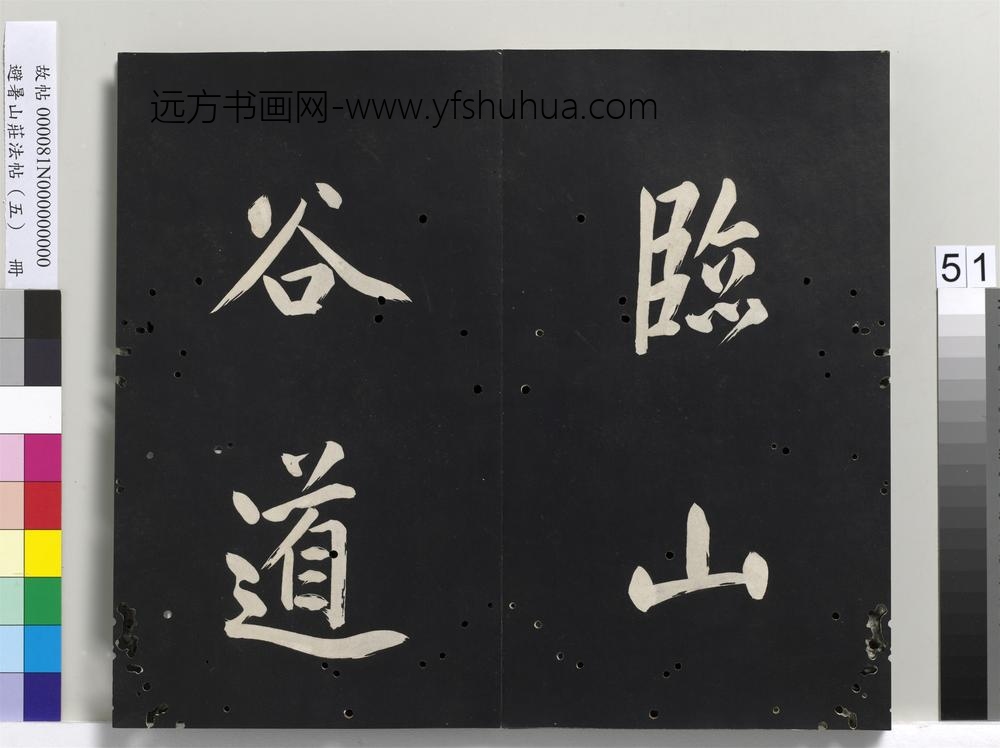 远方书画网-www.yfshuhua.com
臨山
谷道
故帖 000081N000000000
避暑山莊法帖（五） 冊
51